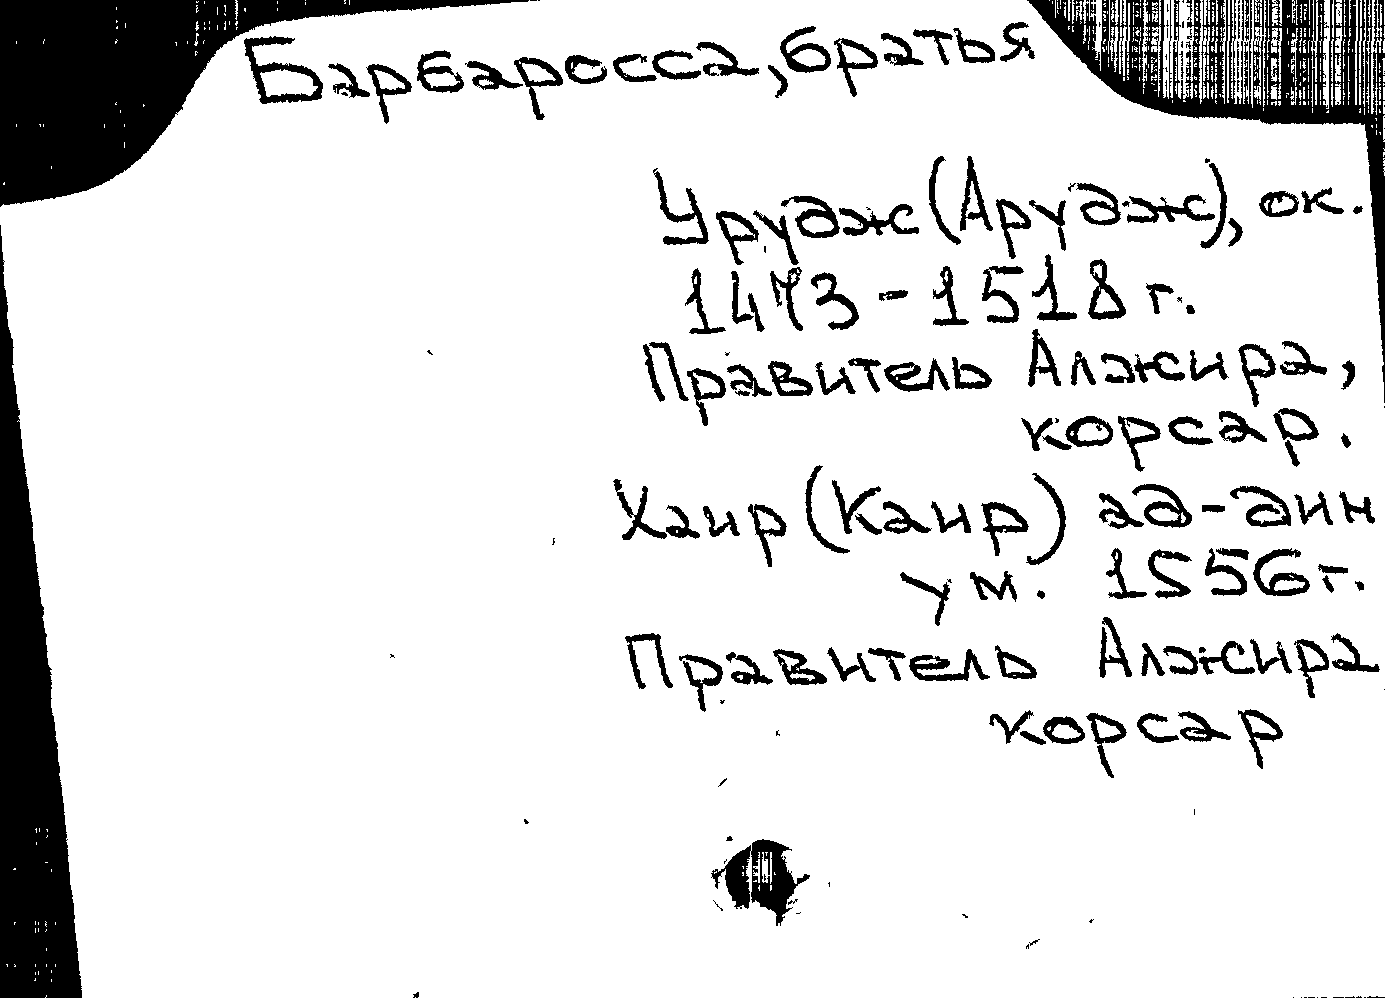 Барбаросса, братья
Урудж (Арудж), ок.
1473 - 1518 г.
Правитель Алжира,
корсар.
Хаир (Каир) ад-дин
ум. 1556 г.
Правитель Алжира
корсар